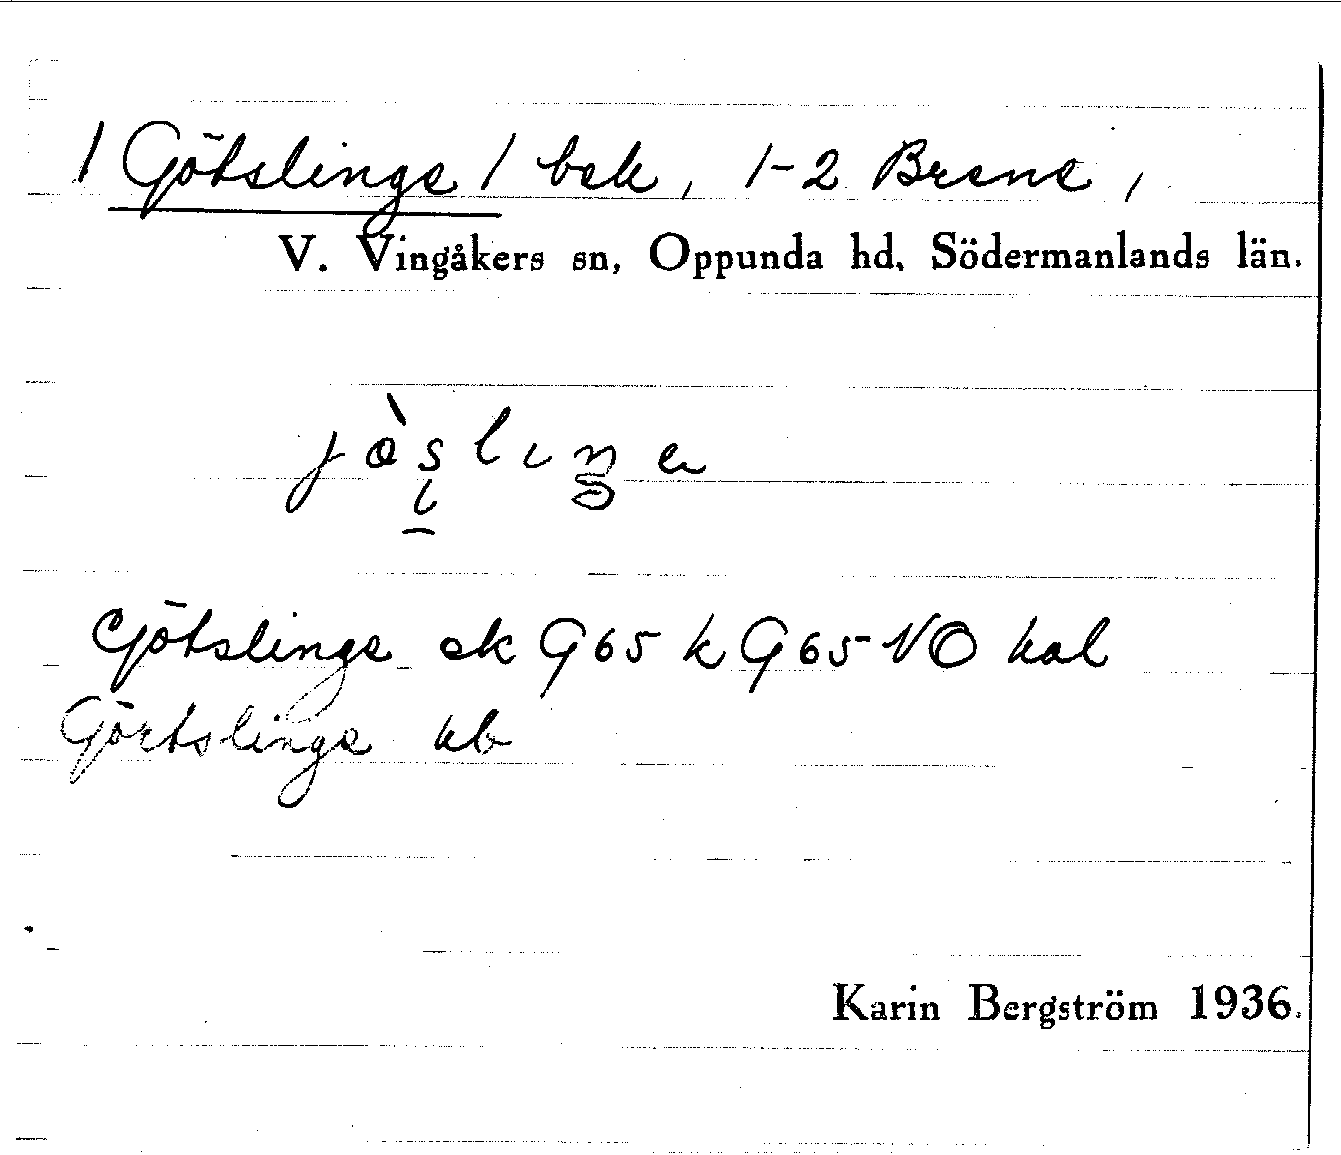 / Götslinge / bek, 1-2 Brene,
V. Vingåkers sn, Oppunda hd, Södermanlands län.
Götslinge ek G65 k G65 NO kal
Görtslinge kb
Karin Bergström 1936.